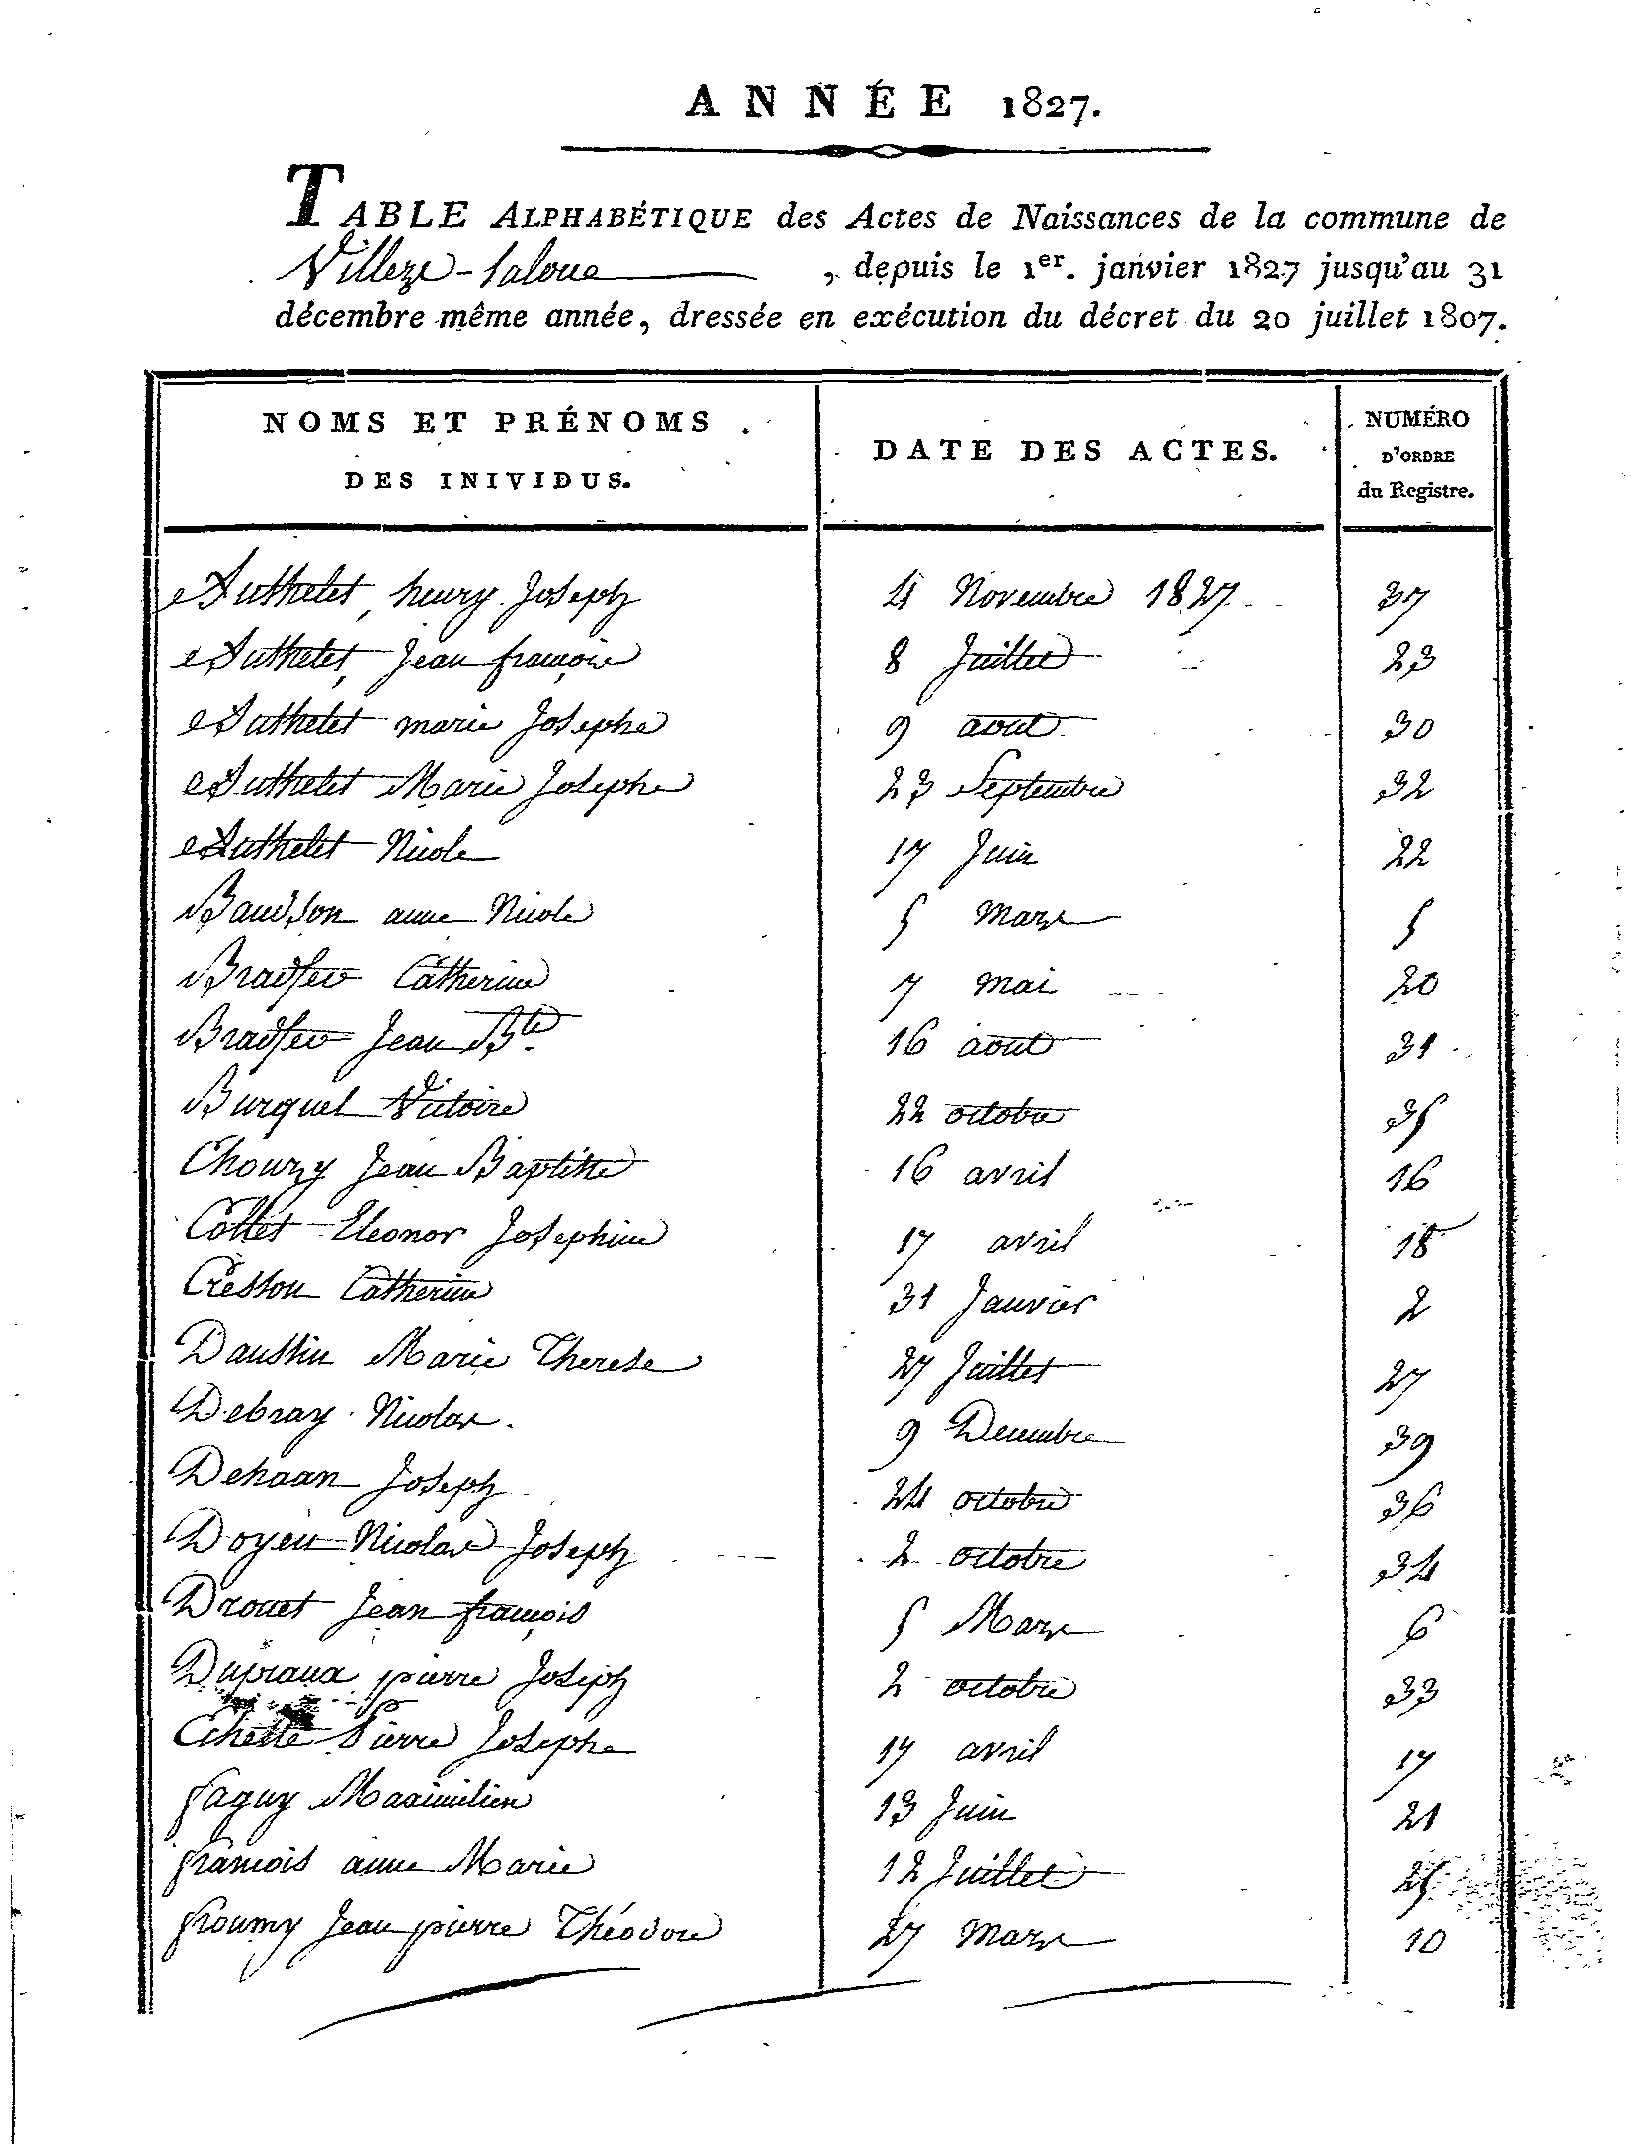 ANNÉE 1827.
TABLE ALPHABÉTIQUE des Actes de Naissances de la commune de
Villers-la loue, depuis le 1er. janvier 1827 jusqu'au 31
décembre même année, dressée en exécution du décret du 20 juillet 1807.
NOMS ET PRÉNOMS DES INIVIDUS. DATE DES ACTES. NUMÉRO D'ORDRE du Registre.
Authelet, henry Joseph 4 Novembre 1827 37
Authelet, Jean françois 8 Juillet 23
Authelet marie Josephe 9 aout 30
Authelet Marie Josephe 23 Septembre 32
Authelet Nicole 17 Juin 22
Baudson anne Nicole 5 Mars 5
Bradfer Catherine 7 mai 20
Bradfer Jean Bte. 16 aout 31
Burquel Victoire 22 octobre 35
Chourzy Jean Baptiste 16 avril 16
Collet Eleonor Josephine 17 avril 18
Cresson Catherine 31 Janvier 2
Daustin Marie Therese 27 Juillet 27
Debray Nicolas. 9 Decembre 39
Dehaan Joseph 24 octobre 36
Doyen Nicolas Joseph 2 octobre 34
Drouet Jean françois 5 Mars 6
Dupraux pierre Joseph 2 octobre 33
Pierre Josephe 17 avril 17
faguy Maximilien 13 Juin 21
francois anne Marie 12 Juillet 25
froumy Jean pierre Théodore 27 Mars 10